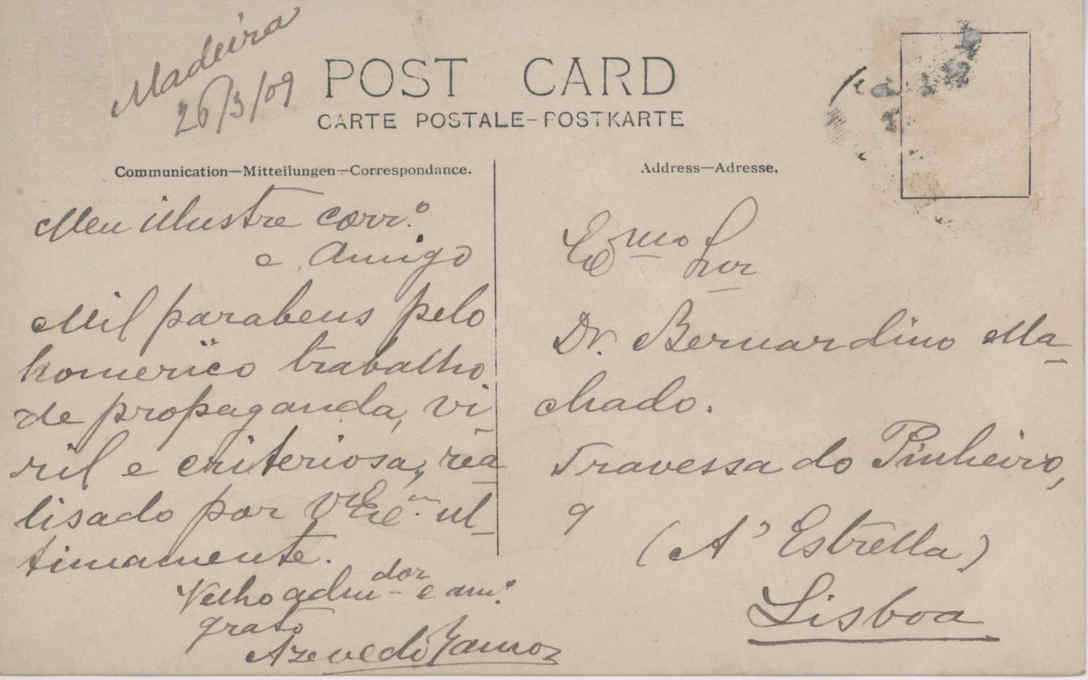 Madeira
26/3/09
POST CARD
CARTE POSTALE–POSTKARTE
Communication—Mitteilungen—Correspondance.
Meu illustre corr.º
e Amigo
Mil parabens pelo
homerico trabalho
de propaganda, vi
ril e criteriosa, rea
lisado por V. Ex.ª ul-
timamente.
Velho adm.dor e am.º
grato
Azevedo Ramos
Address—Adresse.
Ex.mo Snr
Dr. Bernardino Ma-
chado.
Travessa do Pinheiro,
9
(A' Estrella)
Lisboa